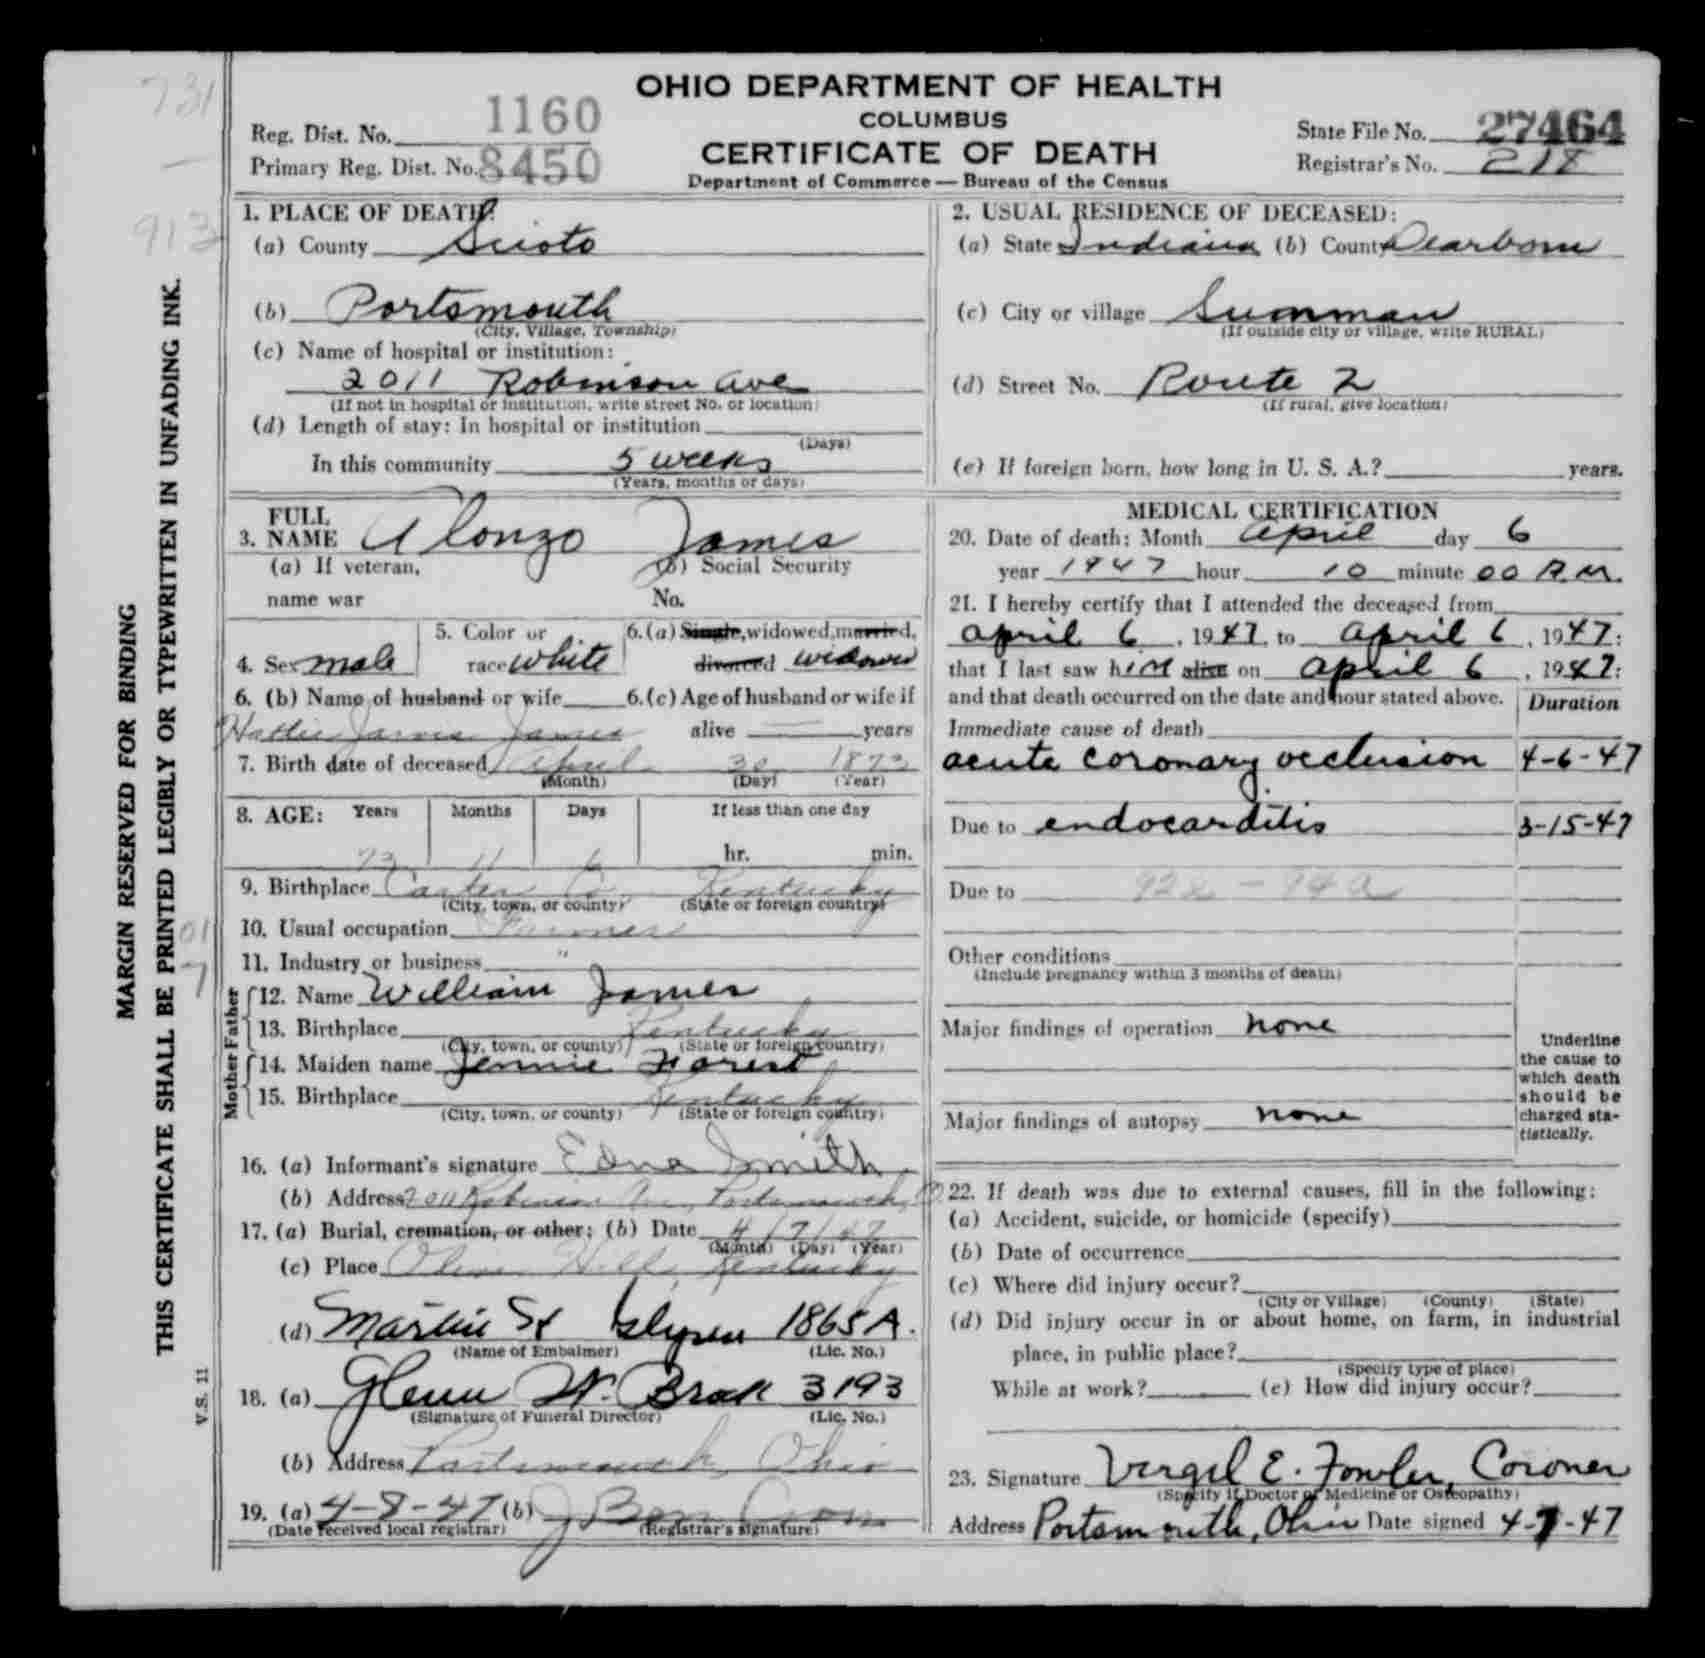 731
913
OHIO DEPARTMENT OF HEALTH
COLUMBUS
CERTIFICATE OF DEATH
Department of Commerce — Bureau of the Census
Reg. Dist. No. 1160
Primary Reg. Dist. No. 8450
State File No. 27464
Registrar's No. 218
MARGIN RESERVED FOR BINDING
THIS CERTIFICATE SHALL BE PRINTED LEGIBLY OR TYPEWRITTEN IN UNFADING INK.
V.S. 11
1. PLACE OF DEATH:
(a) County Scioto
(b) Portsmouth
(City, Village, Township)
(c) Name of hospital or institution:
2011 Robinson Ave
(If not in hospital or institution, write street No. or location)
(d) Length of stay: In hospital or institution
(Days)
In this community 5 weeks
(Years, months or days)
2. USUAL RESIDENCE OF DECEASED:
(a) State Indiana (b) County Dearborn
(c) City or village Sunman
(If outside city or village, write RURAL)
(d) Street No. Route 2
(If rural, give location)
(e) If foreign born, how long in U. S. A.? years.
3. FULL NAME Alonzo James
(a) If veteran, name war
(b) Social Security No.
4. Sex male
5. Color or race white
6. (a) Single, widowed, married, divorced widowed
6. (b) Name of husband or wife Hattie Jarvis James
6. (c) Age of husband or wife if alive — years
7. Birth date of deceased April 30 1873
(Month) (Day) (Year)
8. AGE: Years Months Days If less than one day
73 11 6 hr. min.
9. Birthplace Carter Co. Kentucky
(City, town, or county) (State or foreign country)
10. Usual occupation Farmer
11. Industry or business "
Father
12. Name William James
13. Birthplace Kentucky
(City, town, or county) (State or foreign country)
Mother
14. Maiden name Jennie Forest
15. Birthplace Kentucky
(City, town, or county) (State or foreign country)
16. (a) Informant's signature Edna Smith
(b) Address 2011 Robinson Ave, Portsmouth, O
17. (a) Burial, cremation, or other; (b) Date 4/7/47
(Month) (Day) (Year)
(c) Place Olive Hill, Kentucky
(d) Martin St 1865A.
(Name of Embalmer) (Lic. No.)
18. (a) Glenn W. 3193
(Signature of Funeral Director) (Lic. No.)
(b) Address Portsmouth, Ohio
19. (a) 4-8-47 (b) J
(Date received local registrar) (Registrar's signature)
MEDICAL CERTIFICATION
20. Date of death: Month April day 6
year 1947 hour 10 minute 00 A.M.
21. I hereby certify that I attended the deceased from
April 6, 1947, to April 6, 1947:
that I last saw him alive on April 6, 1947:
and that death occurred on the date and hour stated above.
Duration
Immediate cause of death
acute coronary occlusion 4-6-47
Due to endocarditis 3-15-47
Due to 92a - 94a
Other conditions
(Include pregnancy within 3 months of death)
Major findings of operation none
Major findings of autopsy none
Underline the cause to which death should be charged statistically.
22. If death was due to external causes, fill in the following:
(a) Accident, suicide, or homicide (specify)
(b) Date of occurrence
(c) Where did injury occur?
(City or Village) (County) (State)
(d) Did injury occur in or about home, on farm, in industrial
place, in public place?
(Specify type of place)
While at work? (e) How did injury occur?
23. Signature Vergil E. Fowler, Coroner
(Specify if Doctor of Medicine or Osteopathy)
Address Portsmouth, Ohio Date signed 4-7-47